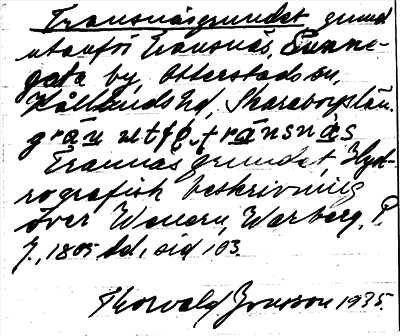 Transnäsgrundet grund
utanför Transnäs, Sunne-
gata by, Otterstads sn,
Kållands hd, Skaraborgs län.
grän utfö, tránsnäs
Trannäs grundet, Hyd-
rografisk beskrivning
över Wenern, Warberg, P.
J., 1805 , sid 103.
Thorvald Jonsson 1935.